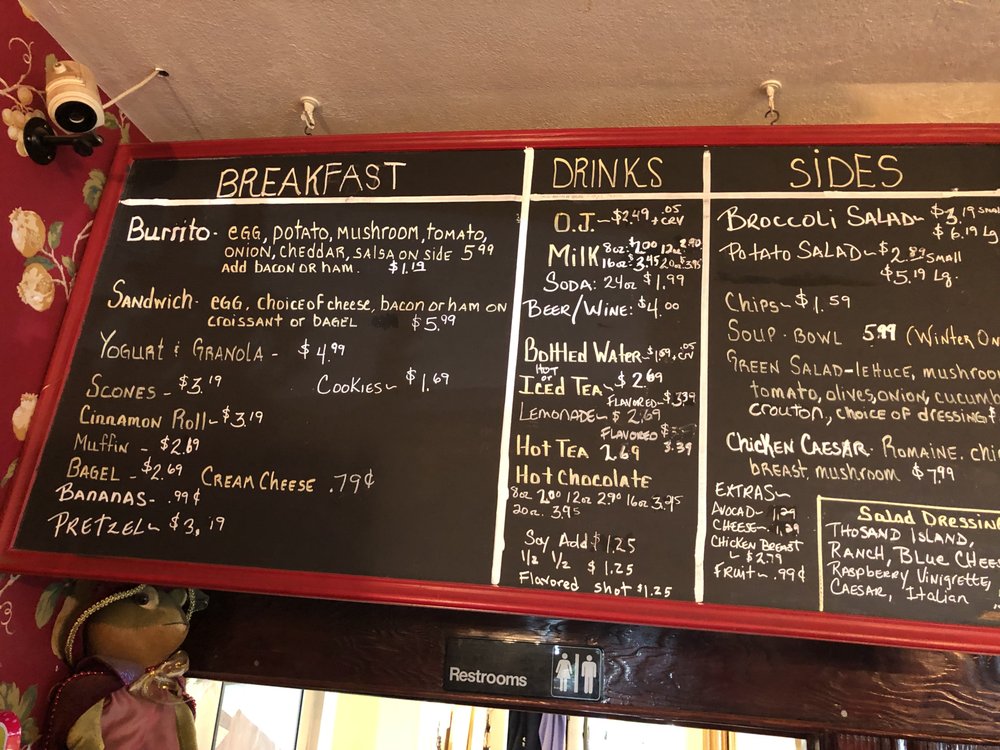 BREAKFAST
Burrito - egg, potato, mushroom, tomato,
onion, cheddar, salsa on side 5.99
Add bacon or ham. $1.19
Sandwich - egg, choice of cheese, bacon or ham on
croissant or bagel $5.99
Yogurt & Granola - $4.99
Scones - $3.19
Cookies - $1.69
Cinnamon Roll - $3.19
Muffin - $2.69
Bagel - $2.69 Cream Cheese .79¢
Bananas - .99¢
Pretzel - $3.19
DRINKS
O.J. - $2.49 + .05 CRV
Milk 8oz. $2.00 12oz 2.90
16oz. 3.45 20oz. 3.95
Soda: 24oz $1.99
Beer/Wine: $4.00
Bottled Water - $1.89 + .05 CRV
Hot or
Iced Tea - $2.69
Flavored - $3.39
Lemonade - $2.69
Flavored $ 3.39
Hot Tea 2.69
Hot Chocolate
8oz 2.00 12oz 2.90 16oz 3.45
20oz. 3.95
Soy Add $1.25
1/2 1/2 $1.25
Flavored shot $1.25
SIDES
Broccoli Salad - $3.19 Small
$6.19 Lg
Potato Salad - $2.89 Small
$5.19 Lg.
Chips - $1.59
Soup - Bowl 5.99 (Winter
Green Salad - lettuce,
tomato, olives, onion,
crouton, choice of dressing $
Chicken Caesar - Romaine,
breast, mushroom $7.99
Extras -
Avocad - 1.29
Cheese - 1.29
Chicken Breast
- $2.79
Fruit - .99¢
Salad
Thosand Island,
Ranch, Blue
Raspberry Vinigrette,
Caesar, Italian
Restrooms